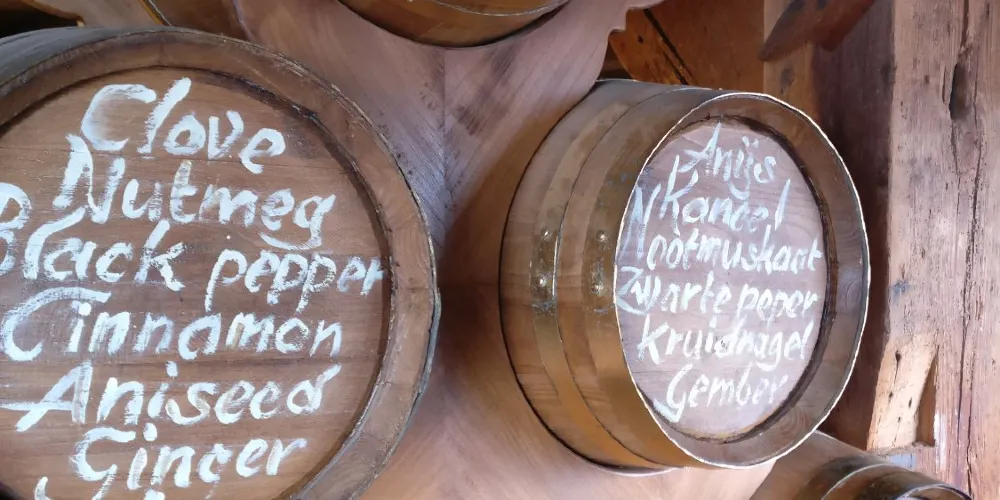 Clove
Nutmeg
Black pepper
Cinnamon
Aniseed
Ginger
Anijs
Kaneel
Nootmuskaat
Zwarte peper
Kruidnagel
Gember